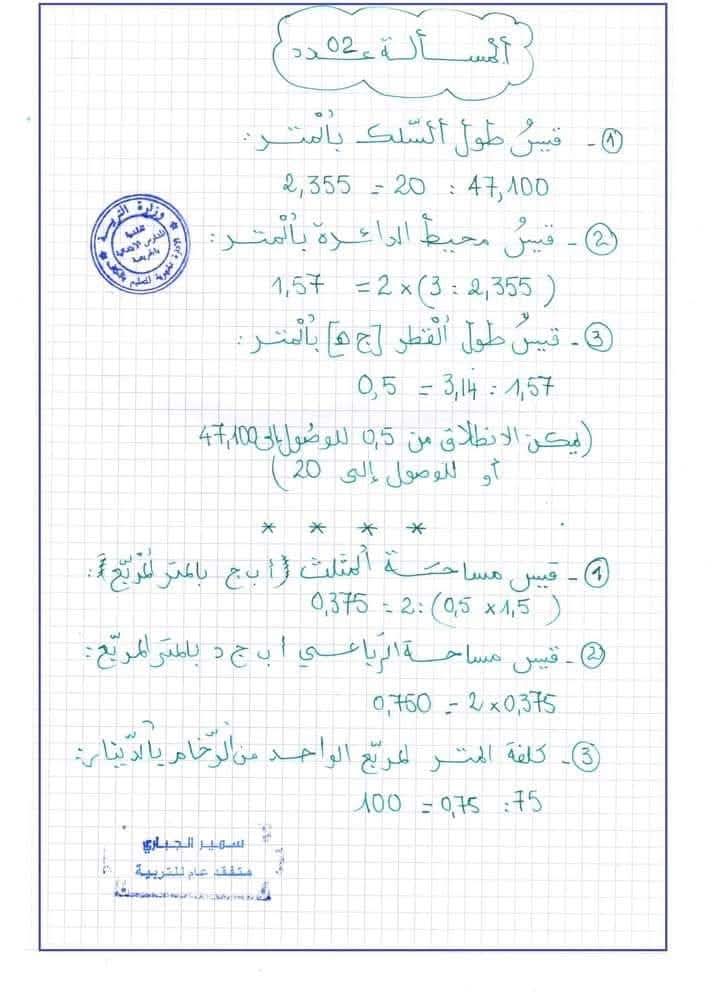 المسألة عدد 02
① - قيس طول السّلك بالمتر :
47,100 : 20 = 2,355
② - قيس محيط الدائرة بالمتر :
( 2,355 : 3 ) × 2 = 1,57
③ - قيس طول القطر [ج ه] بالمتر :
1,57 : 3,14 = 0,5
(يمكن الانطلاق من 0,5 للوصول إلى 47,100
أو للوصول إلى 20 )
* * * *
① - قيس مساحة المثلث أ ب ج بالمتر المربّع :
( 1,5 × 0,5 ) : 2 = 0,375
② - قيس مساحة الرباعي أ ب ج د بالمتر المربّع :
0,375 × 2 = 0,750
③ - كلفة المتر المربّع الواحد من الرّخام بالدّينار :
75 : 0,75 = 100
وزارة التربية
سمير الجباري
متفقد عام للتربية